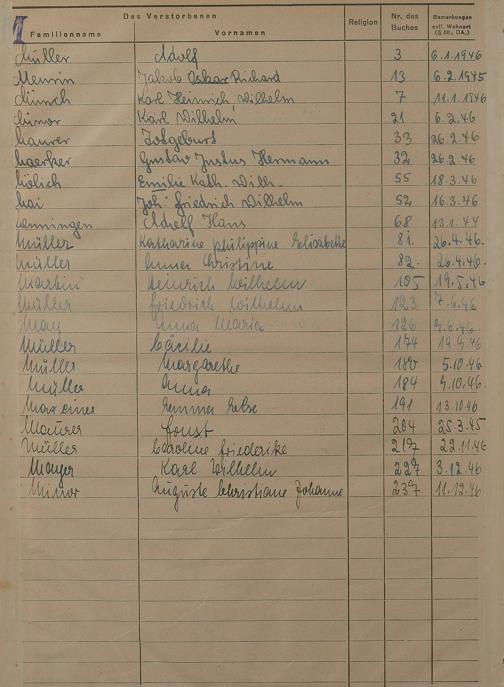 Des Verstorbenen Religion Nr. des Buches Bemerkungen evtl. Wohnort (§ 88, DA.)
Familienname Vornamen
Müller Adolf 3 6.1.1946
Menrin Jakob Oskar Richard 13 6.2.1945
Münch Karl Heinrich Wilhelm 7 11.1.1946
Minor Karl Wilhelm 21 6.2.46
Maurer Totgeburt 33 26.2.46
Gustav Justus Hermann 32 26.2.46
Emilie Kath. Wilh. 55 18.3.46
Mai Joh. Friedrich Wilhelm 52 16.3.46
Adolf Hans 68 13.1.44
Müller Katharine Philippine Elisabethe 81. 26.4.46.
Müller Anna Christine 82. 26.4.46.
Martin Heinrich Wilhelm 105 19.5.46
Müller Friedrich Wilhelm 123 7.6.46
May Anna Maria 126 9.6.46.
Müller Cäcilie 174 19.9.46
Müller Margarethe 180 5.10.46
Müller Anna 184 9.10.46.
Emma Else 191 13.10.46
Maurer Ernst 204 25.3.45
Müller Caroline Friederike 217 22.11.46
Mayer Karl Wilhelm 227 3.12.46
Minor Auguste Christiane Johanne 237 11.12.46